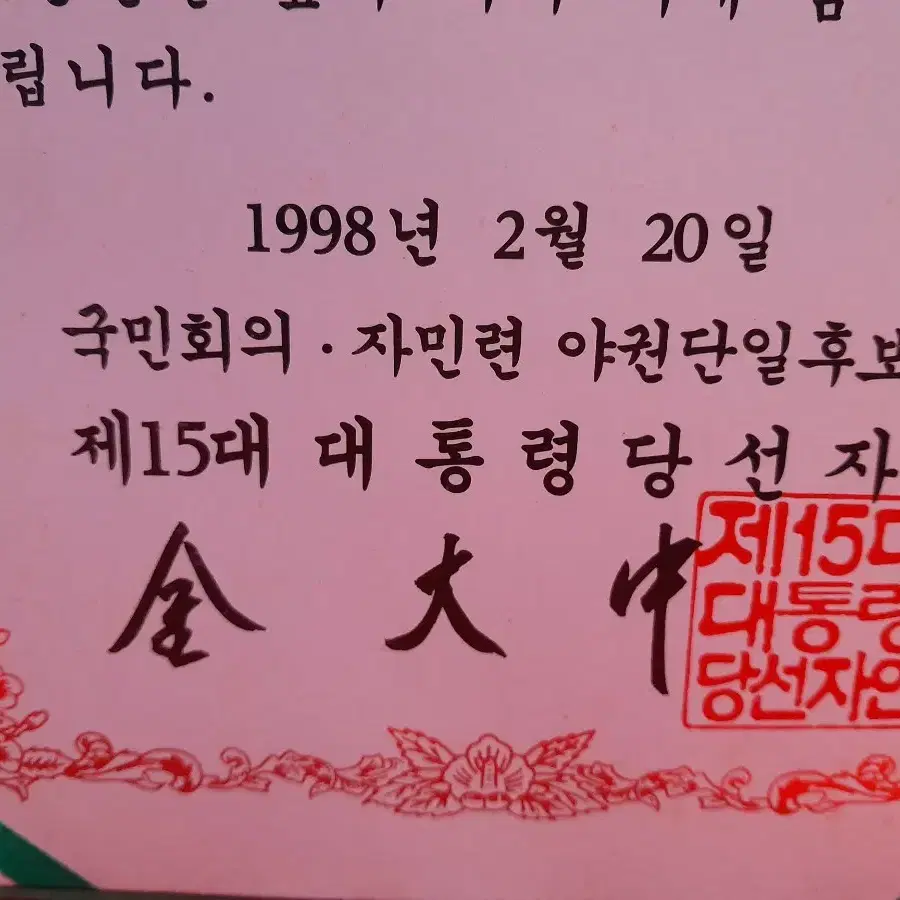 립니다.
1998년 2월 20일
국민회의·자민련 야권단일후보
제15대 대통령당선자
金大中
제15대
대통령
당선자인